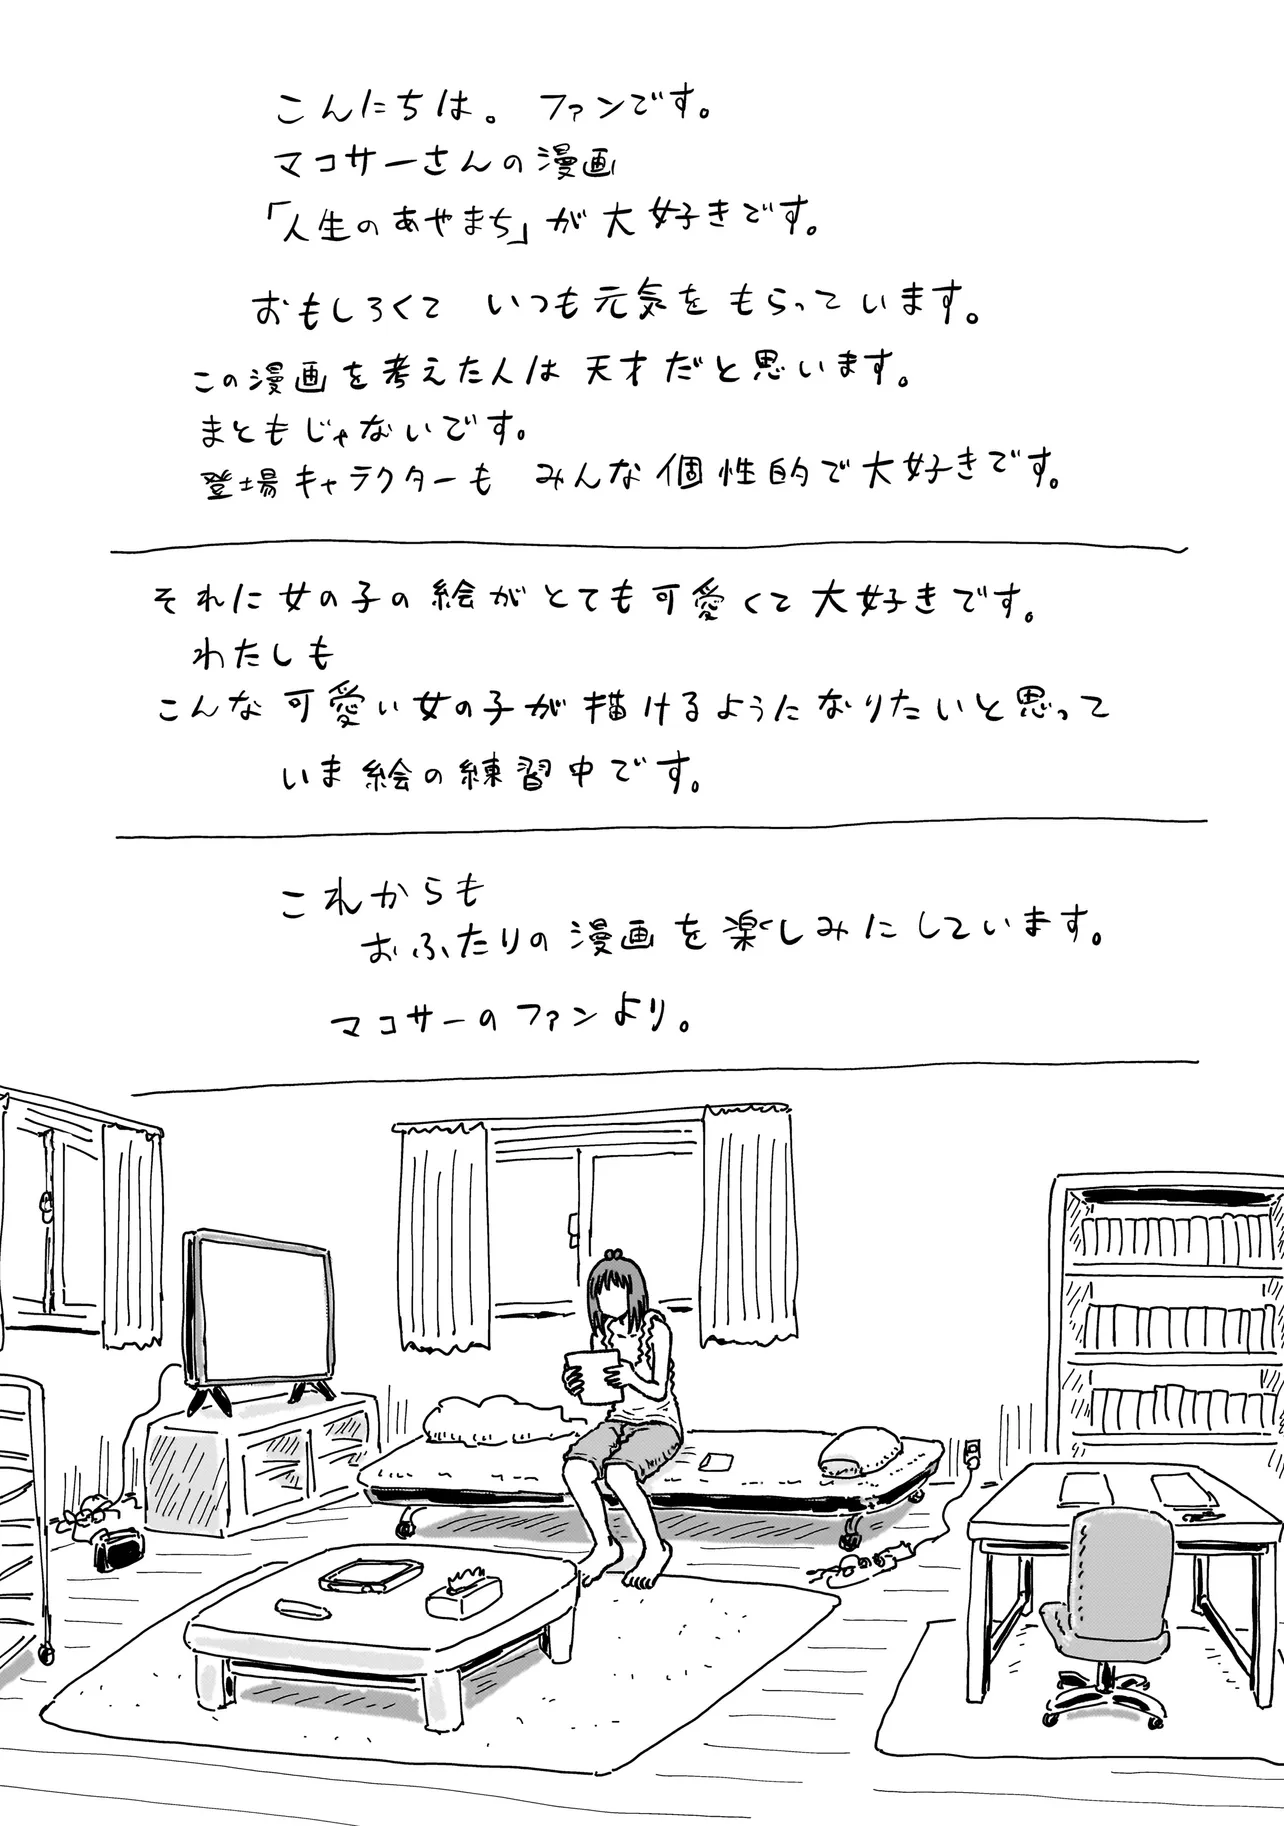 こんにちは。 ファンです。
マコサーさんの漫画
「人生のあやまち」が大好きです。
おもしろくて いつも元気をもらっています。
この漫画を考えた人は 天才だと思います。
まともじゃないです。
登場キャラクターも みんな個性的で大好きです。
それに女の子の絵がとても可愛くて大好きです。
わたしも
こんな可愛い女の子が描けるようになりたいと思って
いま絵の練習中です。
これからも
おふたりの漫画を楽しみにしています。
マコサーのファンより。